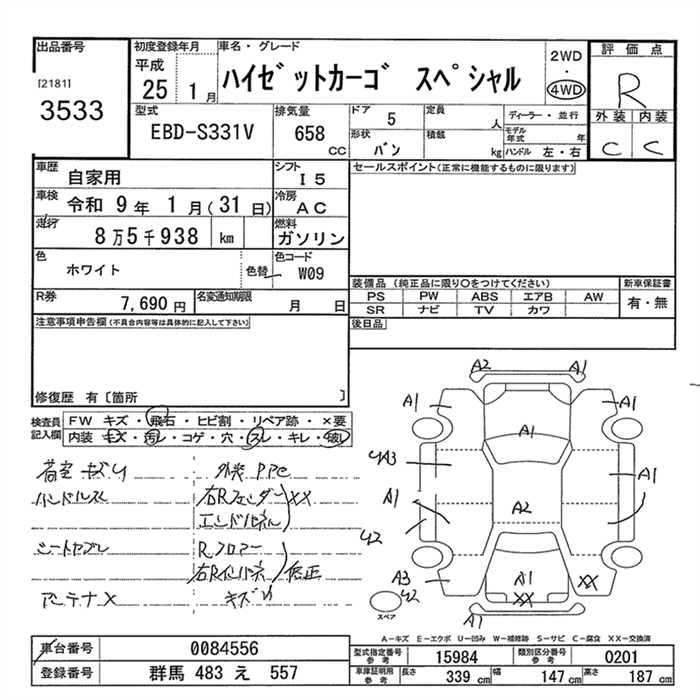 出品番号
[2181]
3533
初度登録年月
平成
25 1月
車名・グレード
ハイゼットカーゴ スペシャル
2WD
・
4WD
評価点
R
外装 内装
C C
型式
EBD-S331V
排気量
658
CC
ドア
5
定員
人
形状
バン
積載
kg
ディーラー・並行
モデル年式 年
ハンドル 左・右
車歴
自家用
シフト
I5
車検
令和 9年 1月(31日)
冷房
AC
走行
8万5千938 km
燃料
ガソリン
色
ホワイト
色替
色コード
W09
R券
7,690円
名変通知期限
月 日
セールスポイント(正常に機能するものに限ります)
装備品(純正品に限り○をつけてください)
PS PW ABS エアB AW
SR ナビ TV カワ
新車保証書
有・無
後日品
注意事項申告欄(不具合内容等は具体的に記入して下さい)
修復歴 有〔箇所 〕
検査員記入欄
FW キズ・飛石・ヒビ割・リペア跡・×要
内装・キズ・汚レ・コゲ・穴・スレ・キレ・破レ
荷室キズU
外装PPC
ハンドルスレ
右Rフェンダー
エンドパネル
XX
シートヤブレ
Rフロアー
右Rインパネ
修正
アンテナX
キズU
A2
A1
A1
A1
A1
A3
A1
A1
A2
A3
A1
XX
XX
A1
スペア
A-キズ E-エクボ U-凹み W-補修跡 S-サビ C-腐食 XX-交換済
車台番号
0084556
登録番号
群馬 483 え 557
型式指定番号
参考
15984
類別区分番号
参考
0201
車庫証明用
参考
長さ 339cm 幅 147cm 高さ 187cm